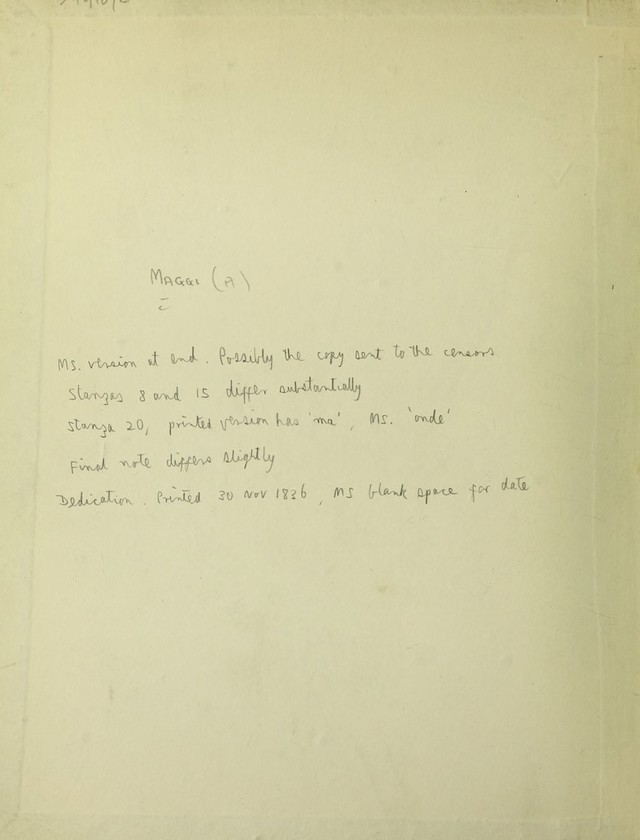 MAGGI (A)
Ms. version at end. Possibly the copy sent to the censors
Stanzas 8 and 15 differ substantially
Stanza 20, printed version has 'ma', Ms. 'onde'
Final note differs slightly
Dedication. Printed 30 Nov 1836, MS blank space for date